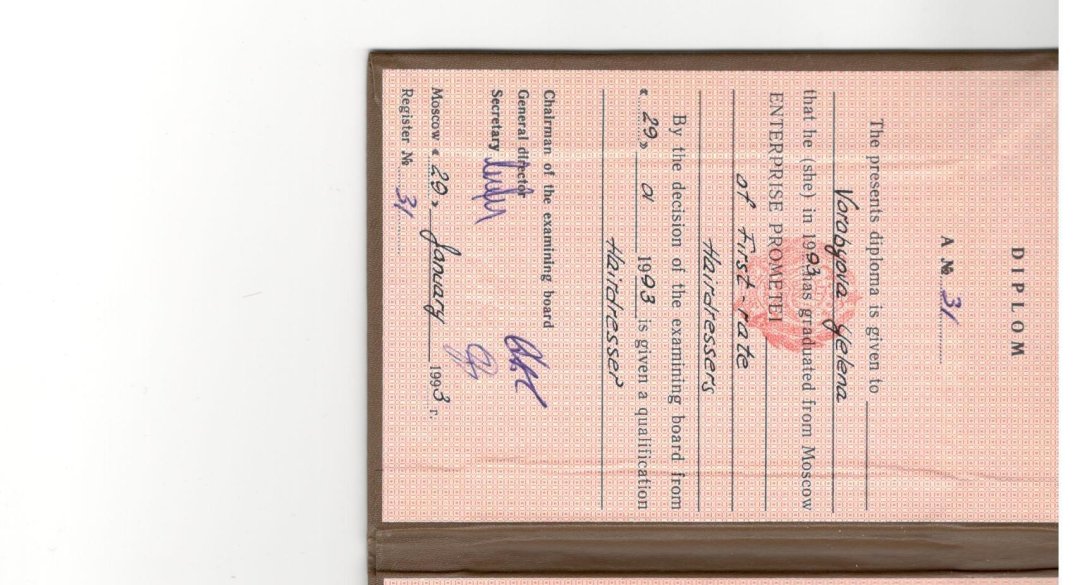 DIPLOM
A № 31
The presents diploma is given to
Vorobyova Yelena
that he (she) in 1993 has graduated from Moscow
ENTERPRISE PROMETEI
of First-rate
Hairdressers
By the decision of the examining board from
« 29 » 01 1993 is given a qualification
Hairdresser
Chairman of the examining board
General director
Secretary
Moscow « 29 » January 1993 г.
Register № 31